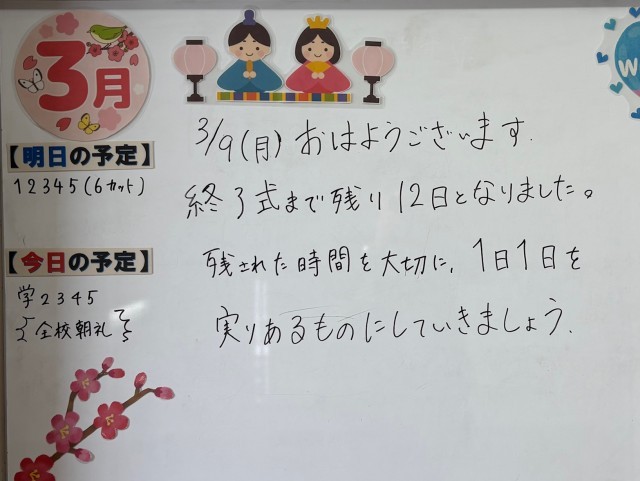 3月
W
3/9(月) おはようございます.
【明日の予定】
12345(6カット)
終了式まで残り12日となりました。
【今日の予定】
残された時間を大切に、1日1日を
学2345
全校朝礼
実りあるものにしていきましょう.